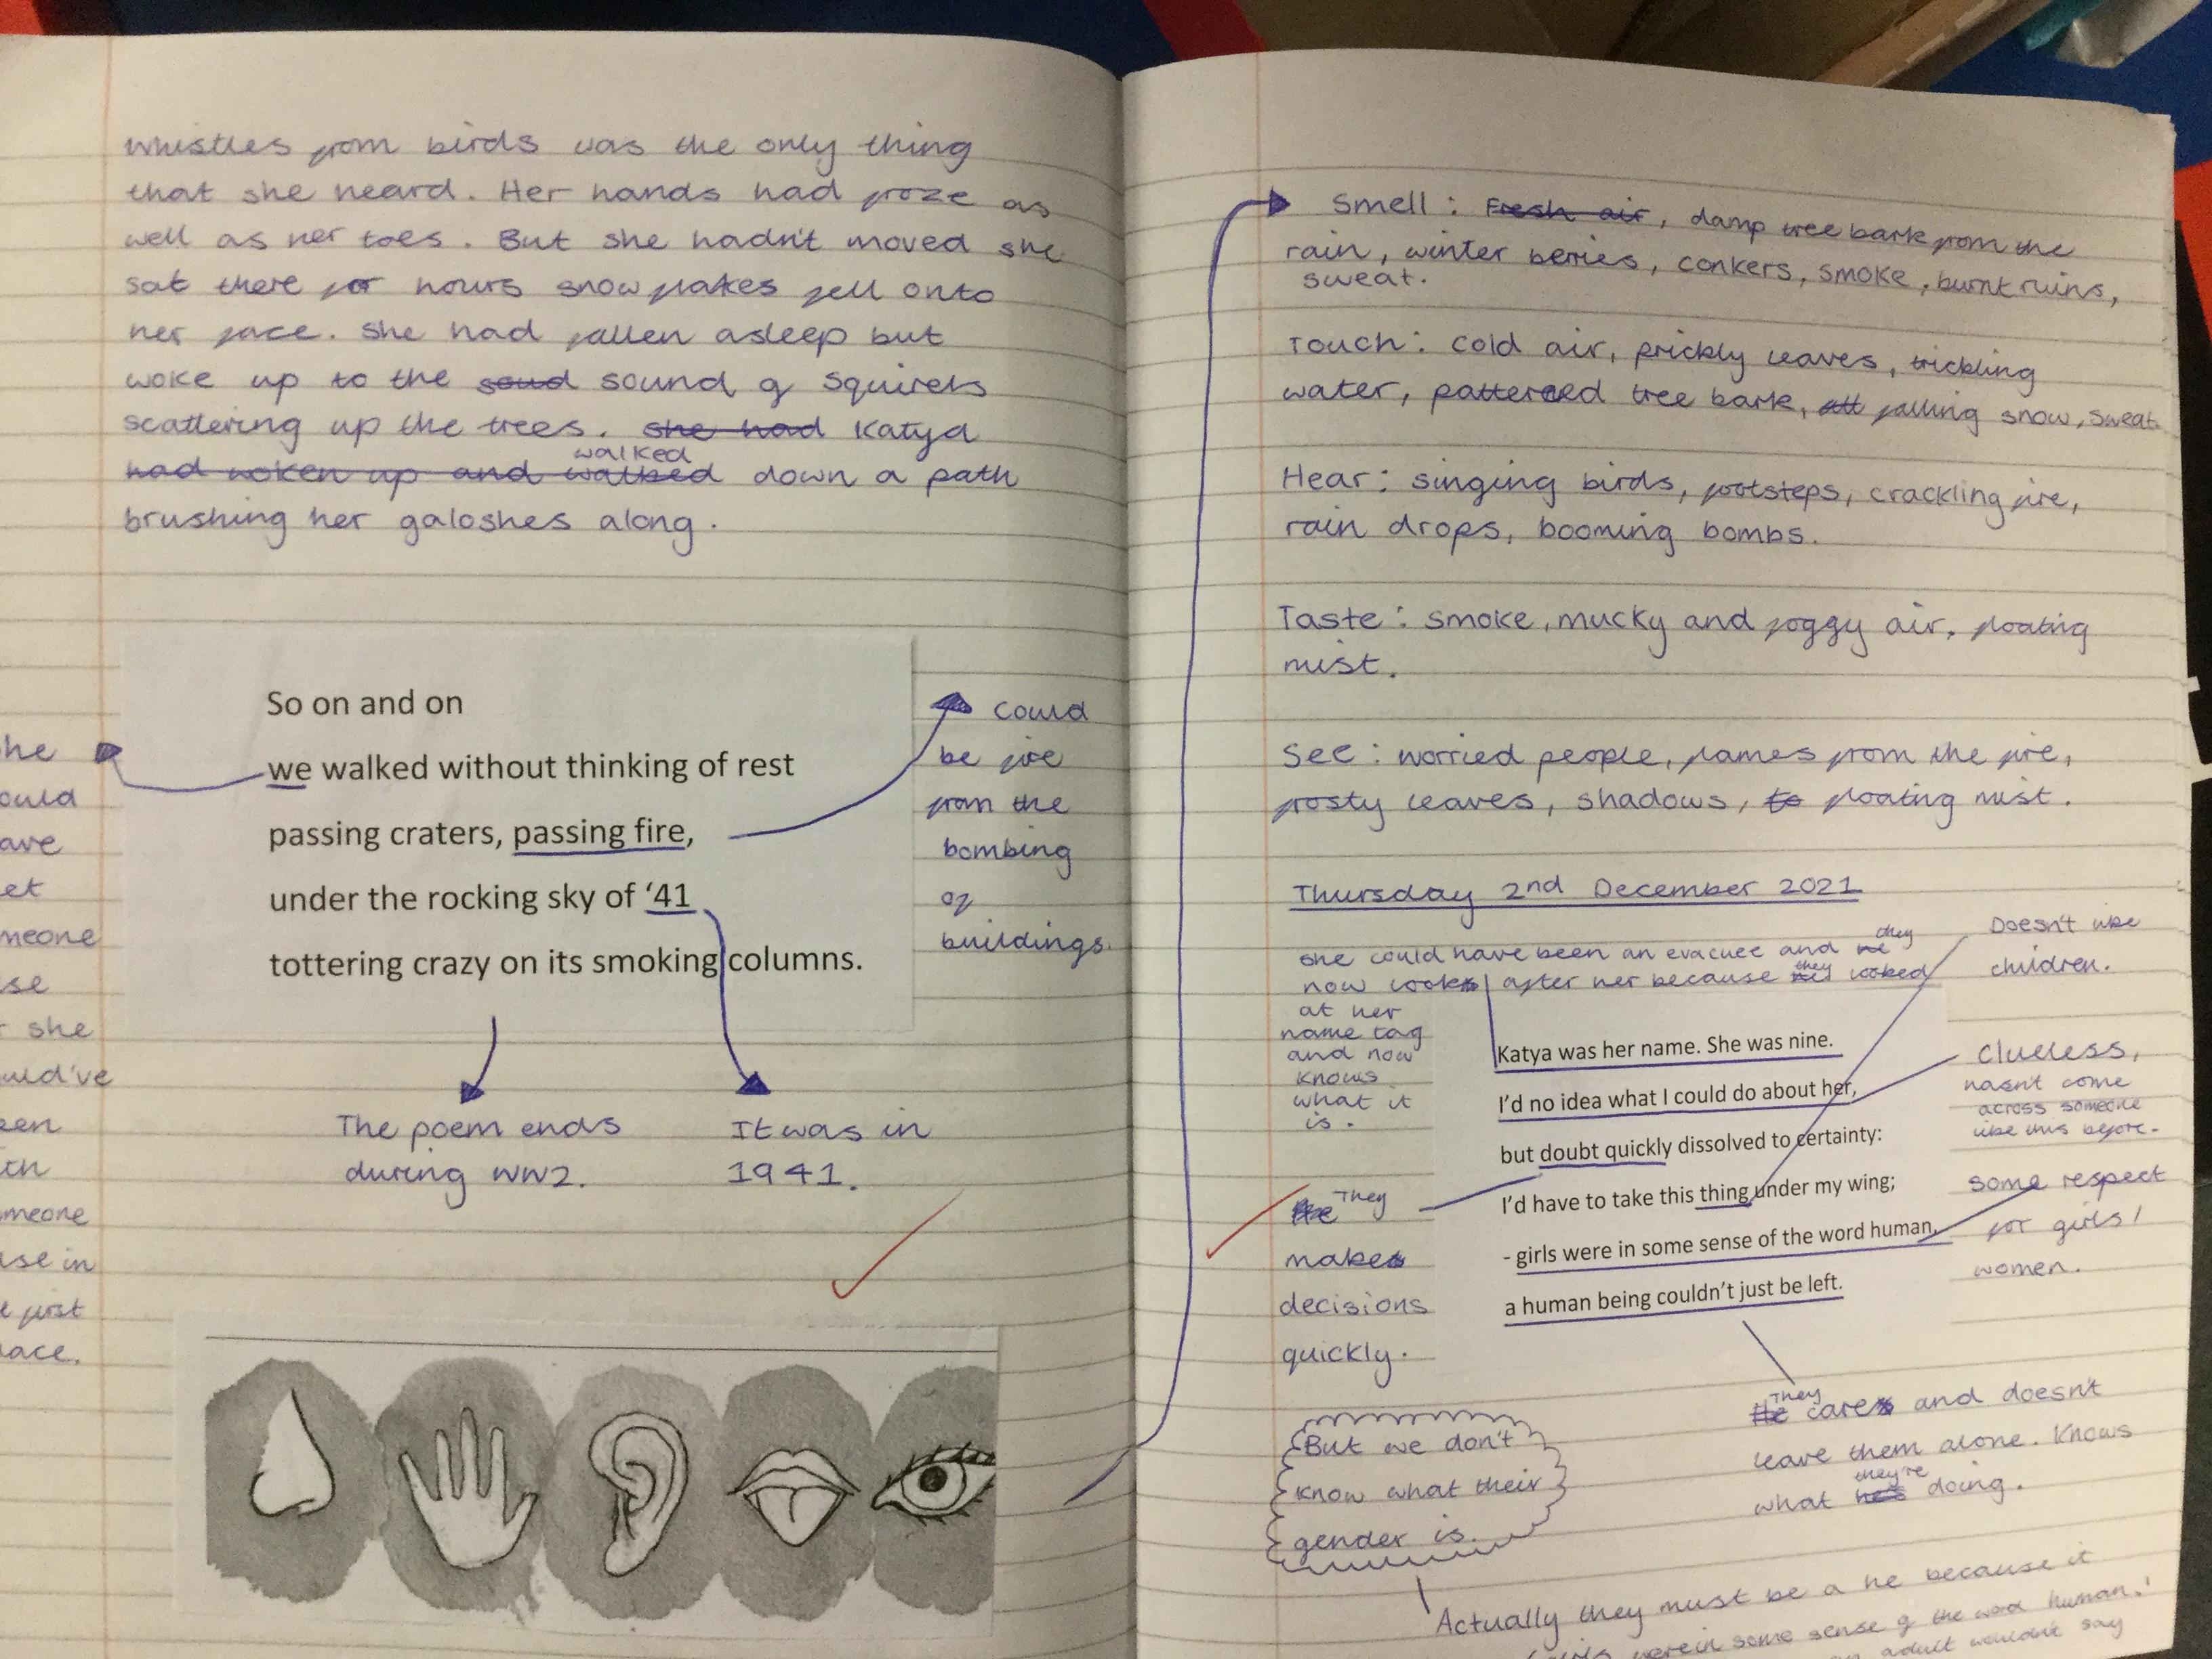 whistles from birds was the only thing
that she heard. Her hands had froze as
well as her toes. But she hadn't moved she
sat there for hours snowflakes fell onto
her face. She had fallen asleep but
woke up to the soud sound of squirels
scattering up the trees. she had Katya
walked
had woken up and walked down a path
brushing her galoshes along.
So on and on
we walked without thinking of rest
passing craters, passing fire,
under the rocking sky of '41
tottering crazy on its smoking columns.
could
be fire
from the
bombing
of
buildings.
he
ould
ave
et
meone
se
she
uld've
een
th
meone
use in
first
ace.
The poem ends
during WW2.
It was in
1941.
Smell : Fresh air, damp tree bark from the
rain, winter berries, conkers, smoke, burnt ruins,
sweat.
Touch : cold air, prickly leaves, trickling
water, patterened tree bark, falling snow, sweat.
Hear : singing birds, footsteps, crackling fire,
rain drops, booming bombs.
Taste : smoke, mucky and foggy air, floating
mist.
See : worried people, flames from the fire,
frosty leaves, shadows, to floating mist.
Thursday 2nd December 2021
she could have been an evacuee and he they
now looks after her because they looked
at her
name tag
and now
knows
what it
is.
Doesn't like
children.
Katya was her name. She was nine.
I'd no idea what I could do about her,
but doubt quickly dissolved to certainty:
I'd have to take this thing under my wing;
- girls were in some sense of the word human,
a human being couldn't just be left.
Clueless,
hasn't come
across someone
like this before.
some respect
for girls/
women.
They
makes
decisions
quickly.
They
He cares and doesn't
leave them alone. Knows
they're
what he's doing.
But we don't
know what their
gender is.
Actually they must be a he because it
girls were in some sense of the word human.'
adult wouldn't say